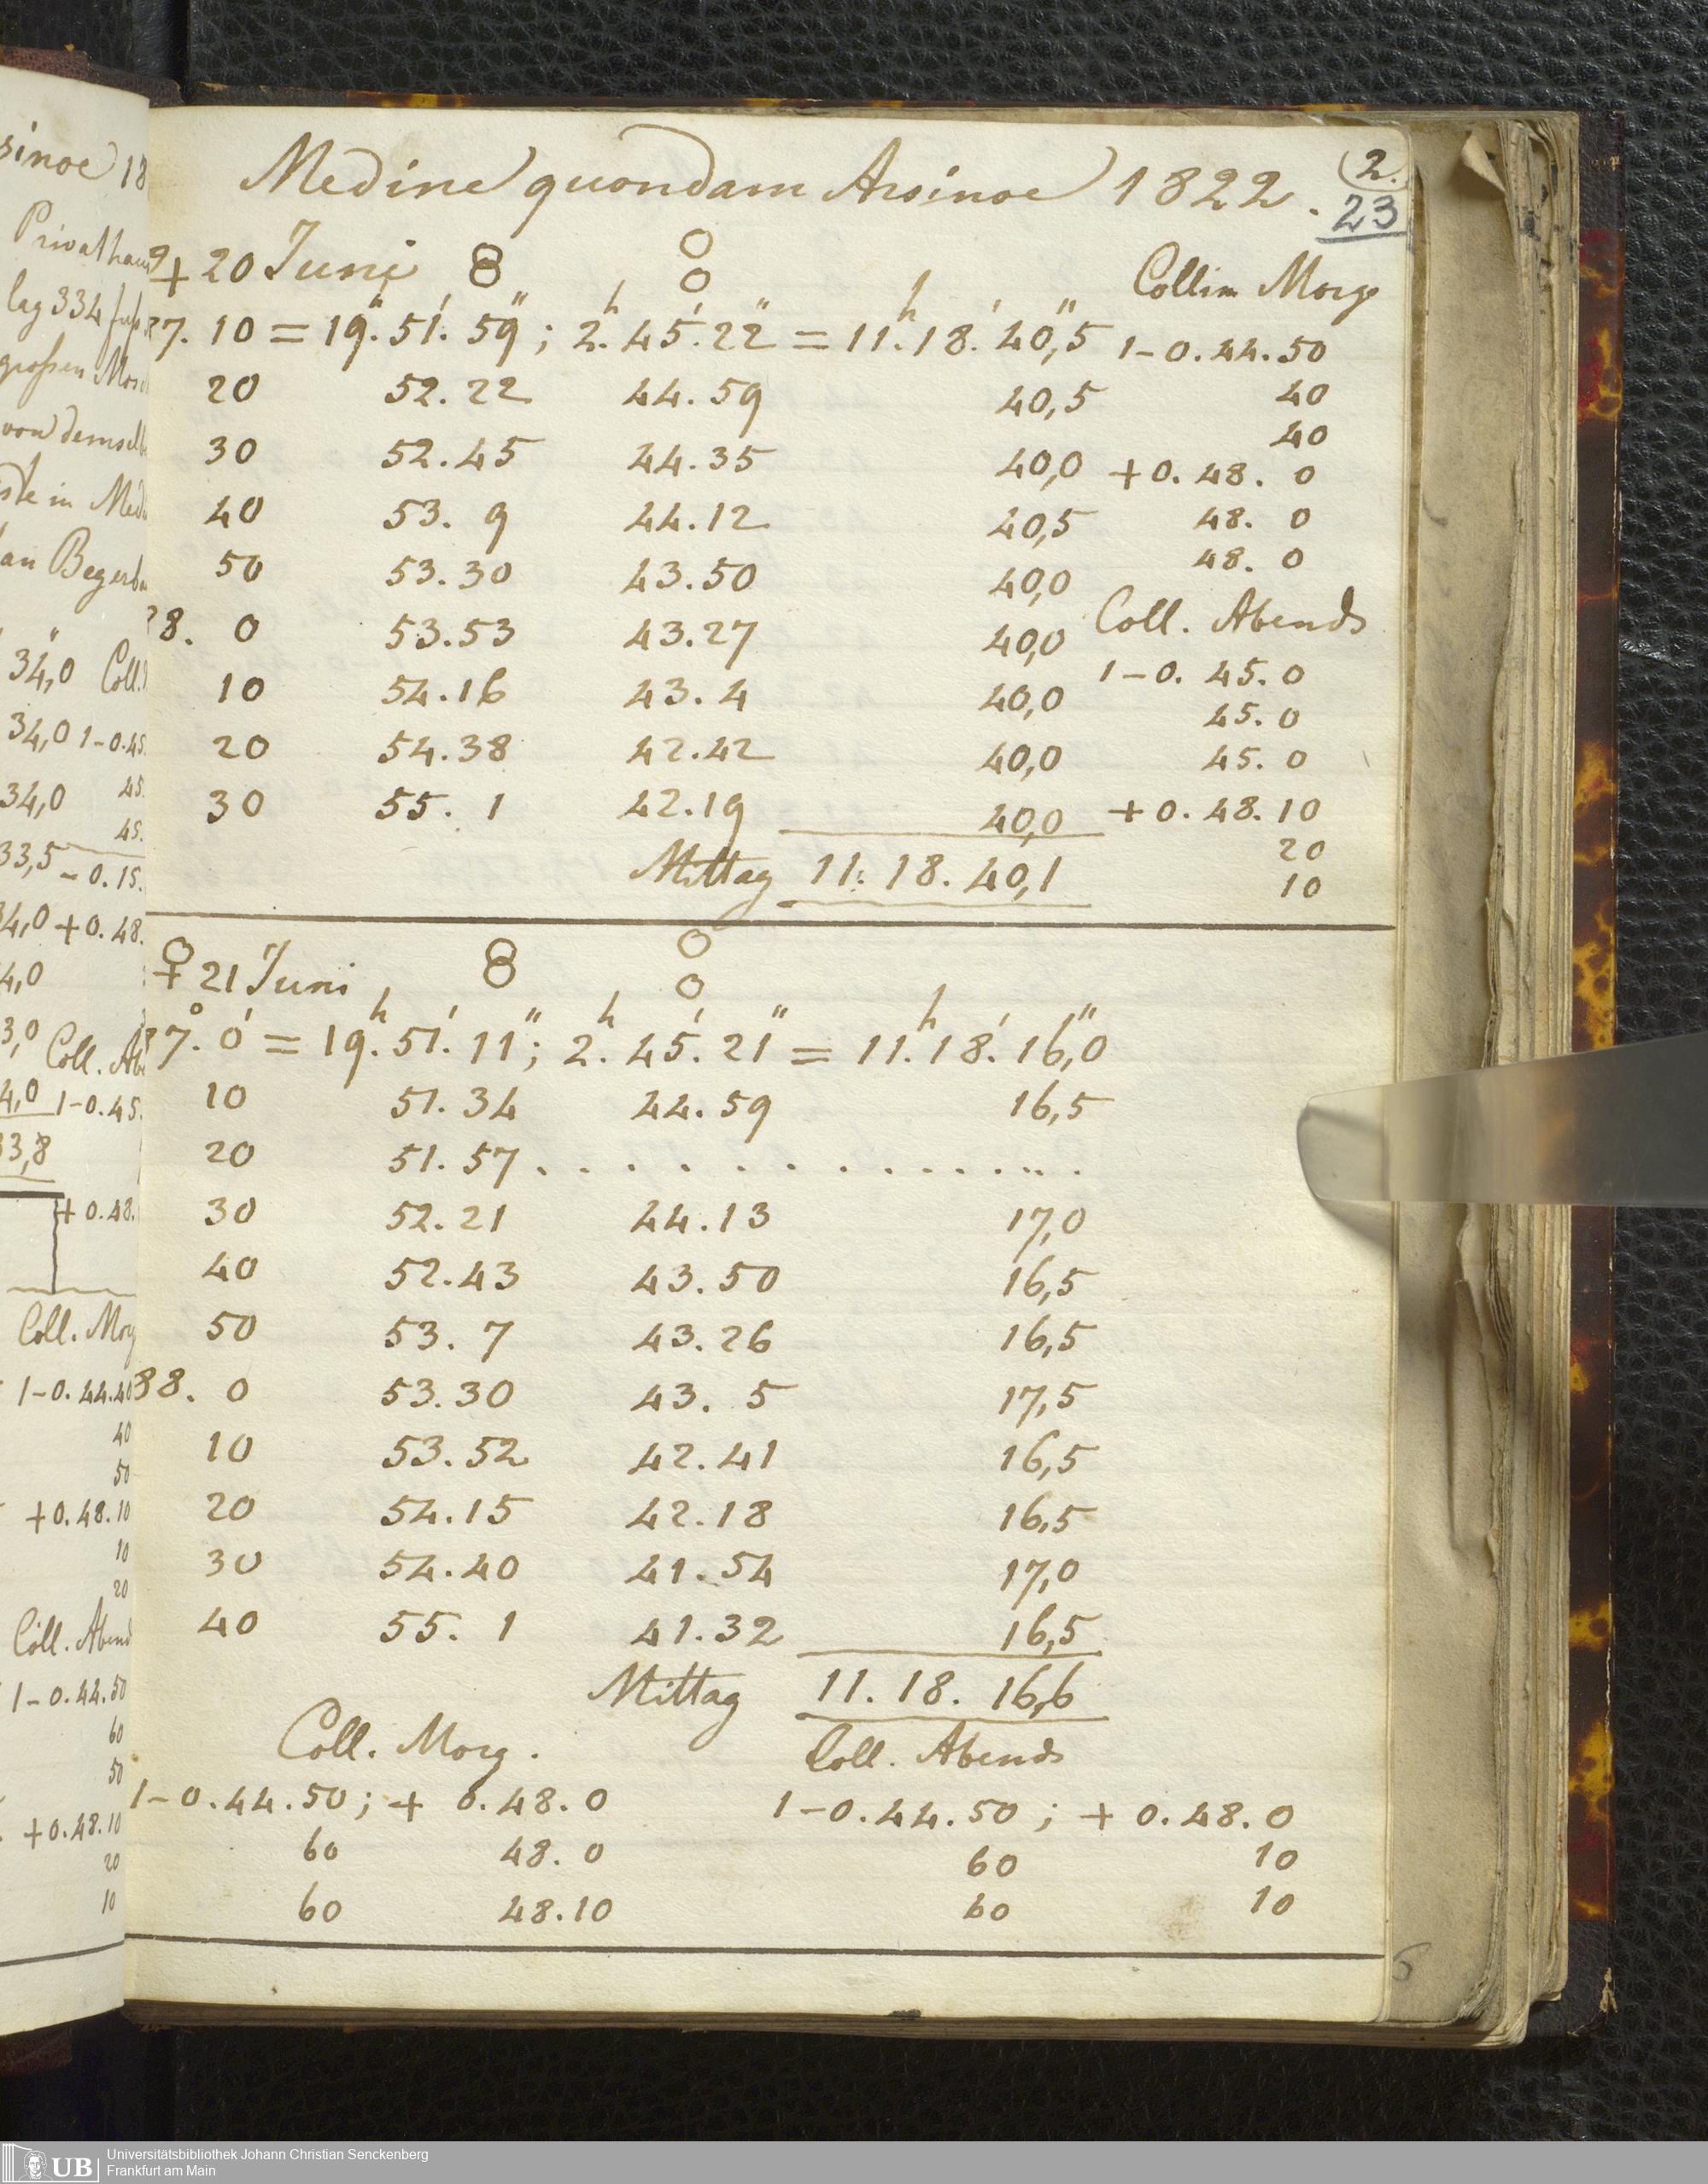 Medine quondam Arsinoe 1822. 2.
23
20 Juni Collim Morg
7. 10 = 19h. 51'. 59"; 2h. 45'. 22" = 11h. 18'. 40,5" 1-0.44.50
20 52.22 44.59 40,5 40
40
30 52.45 44.35 40,0 +0.48. 0
40 53. 9 44.12 40,5 48. 0
50 53.30 43.50 40,0 48. 0
8. 0 53.53 43.27 40,0 Coll. Abends
10 54.16 43.4 40,0 1-0. 45.0
45.0
20 54.38 42.42 40,0 45. 0
30 55. 1 42.19 40,0 +0.48.10
Mittag 11. 18. 40,1 20
10
♀ 21 Juni
7°. 0' = 19h. 51'. 11"; 2h. 45'. 21" = 11h. 18'. 16,0"
10 51. 34 44. 59 16,5
20 51. 57 . . . . . . . . . . . . . .
30 52. 21 44. 13 17,0
40 52.43 43. 50 16,5
50 53. 7 43. 26 16,5
88. 0 53.30 43. 5 17,5
10 53. 52 42. 41 16,5
20 54. 15 42. 18 16,5
30 54. 40 41. 54 17,0
40 55. 1 41. 32 16,5
Mittag 11. 18. 16,6
Coll. Morg. Coll. Abends
1-0.44.50; + 0.48.0 1-0.44.50; + 0.48.0
60 48. 0 60 10
60 48.10 60 10
sinoe 18
Privathau
lag 334
grossen Mos
von demselb
in Med
an
34,0 Coll.
34,0 1-0.45.
34,0 45.
45.
33,5 - 0.15.
4,0 +0.48.
4,0
3,0 Coll. Ab
4,0 1-0.45.
33,8
+0.48.
Coll. Morg
1-0.44.40
40
50
+0.48.10
10
20
Coll. Abend
1-0.44.50
60
50
+0.48.10
20
10
6
UB
Universitätsbibliothek Johann Christian Senckenberg
Frankfurt am Main